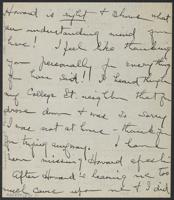 Howard is right & shows what
an understanding mind you
have! I feel like thanking
you personally for everything
you have said!! I heard thru
my College St. neighbor that you
drove down & was so sorry
I was not at home - thanks
for trying anyway. I have
been missing Howard
After Howard's leaving me too
much came upon me & I did